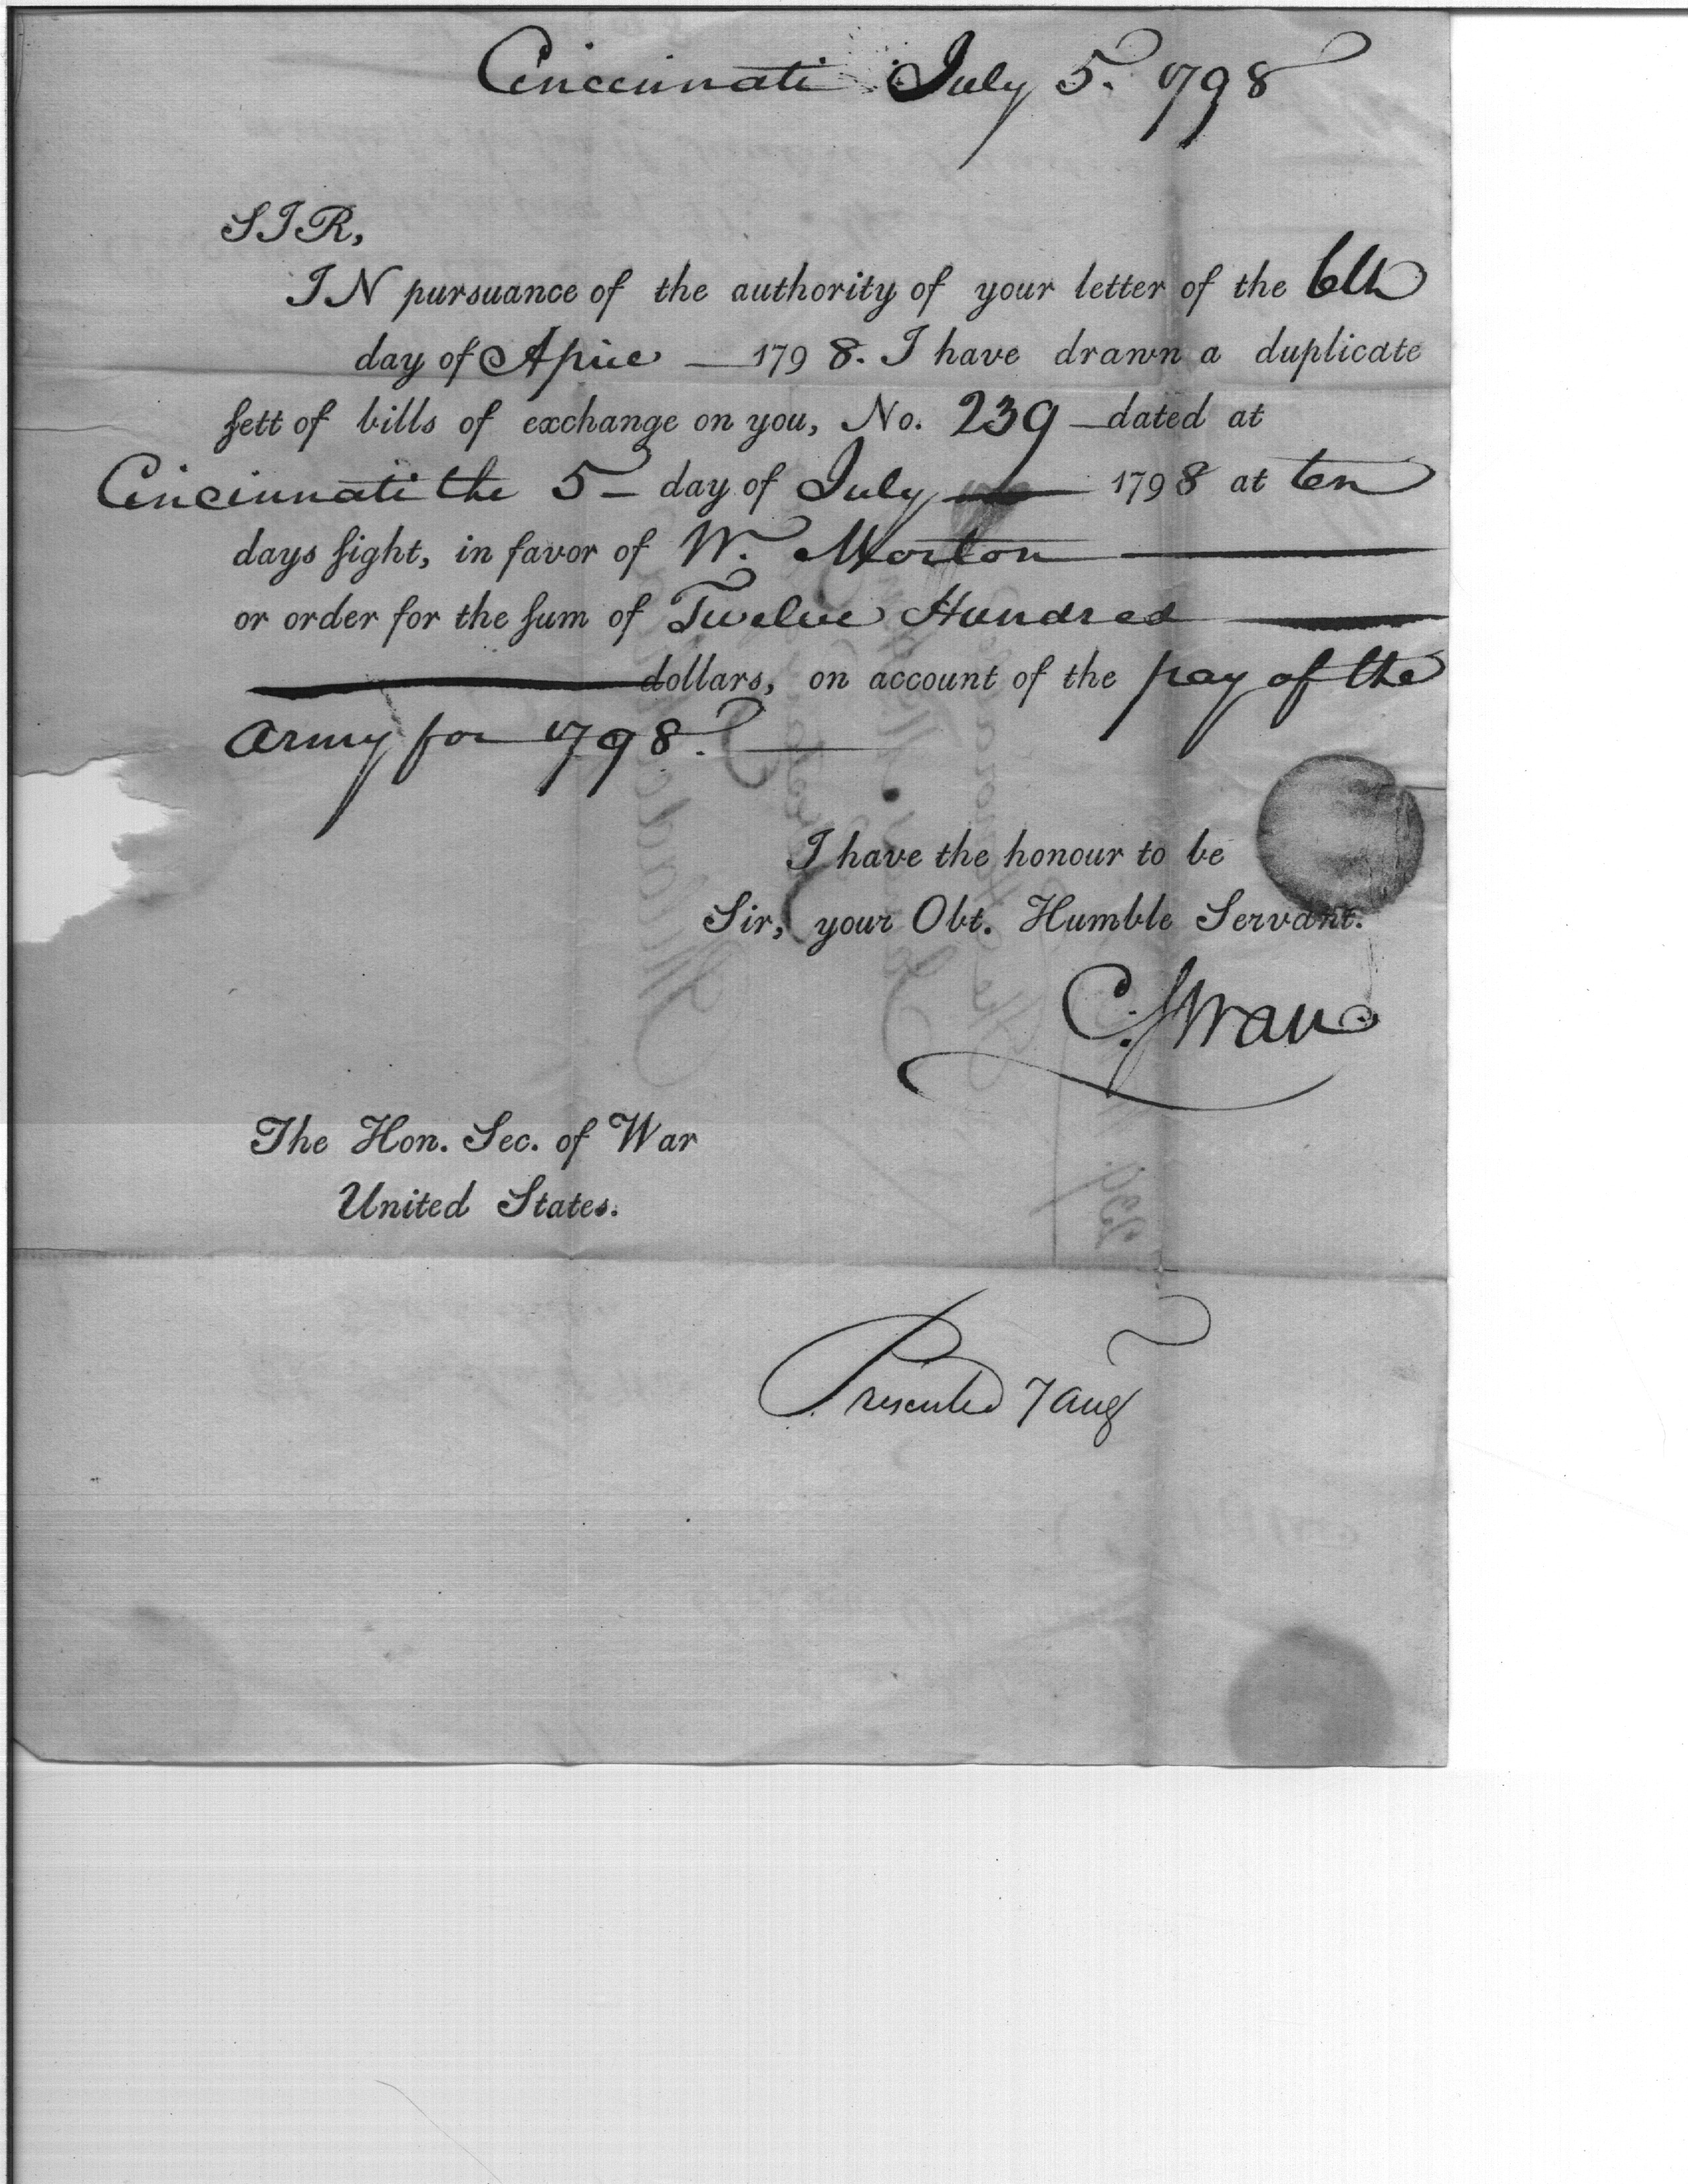 Cincinnati July 5. 1798
SIR,
IN pursuance of the authority of your letter of the 6th
day of April — 1798. I have drawn a duplicate
sett of bills of exchange on you, No. 239 — dated at
Cincinnati the 5 — day of July — 1798 at ten
days sight, in favor of W. Morton —
or order for the sum of Twelve Hundred —
— dollars, on account of the pay of the
army for 1798. —
I have the honour to be
Sir, your Obt. Humble Servant.
C. Swan
The Hon. Sec. of War
United States.
Presented 7 Aug